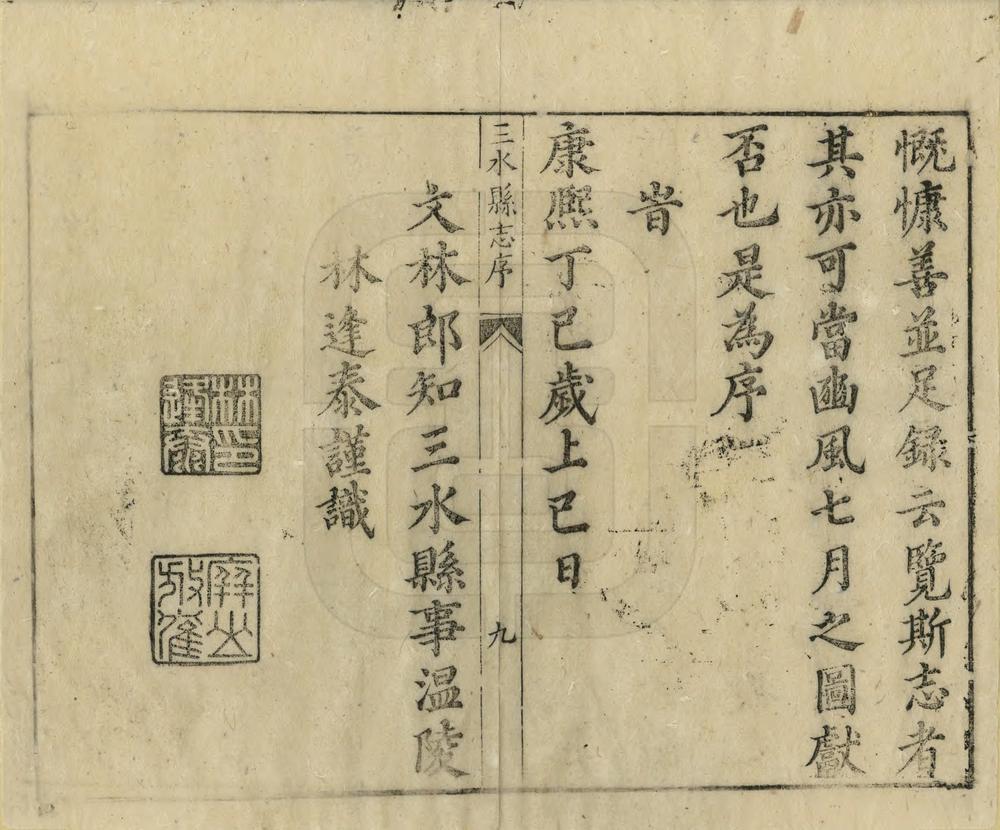 慨慷善並足録云覽斯志者
其亦可當豳風七月之圖獻
否也是為序
旹
康熙丁巳歲上巳日
三水縣志序
九
文林郎知三水縣事温陵
林逢泰謹識